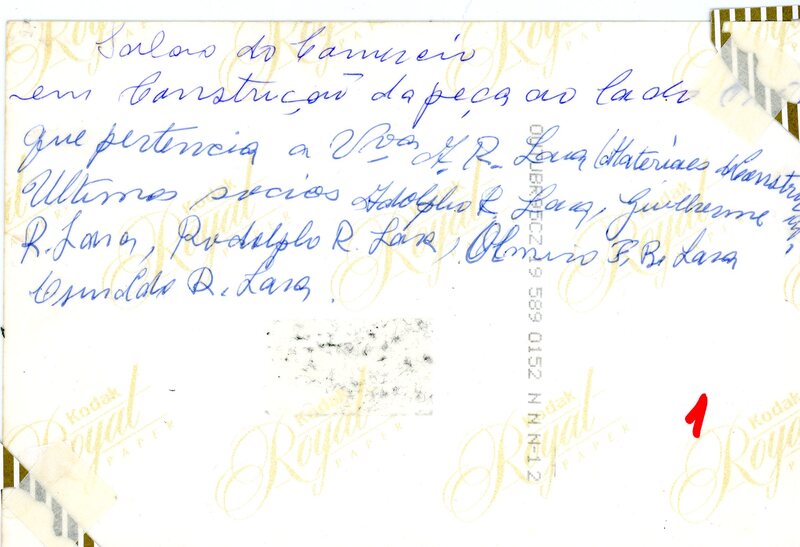 Salão do Comercio
em Construção da peça ao lado
que pertencia a Vva A. R. Lara (Materiaes de Constru
Ultimos socios Adolpho R. Lara, Guilherme
R. Lara, Rodolpho R. Lara, Olmiro F. B. Lara
Osvaldo R. Lara.
589 0152 N N N-12
Kodak
Royal
PAPER
Kodak
Royal
PAPER
Kodak
Royal
PAPER
1